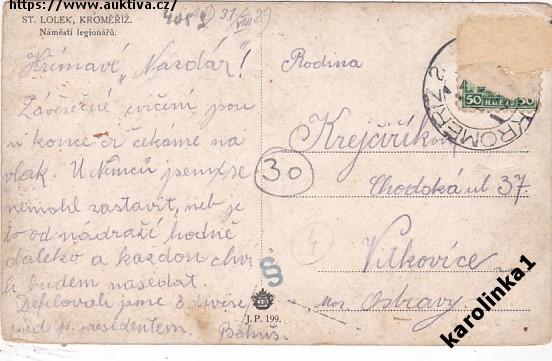 https://www.auktiva.cz/
ST. LOLEK, KROMĚŘÍŽ.
Náměstí legionářů.
31/VIII 29
Hřímavé „Nazdár"!
Závěrečné cvičení jsou
u konce a čekáme na
vlak. U Němců jsem se
nemohl zastavit, neb je
to od nádraží hodně
daleko a každou chvi
li budem nasedat.
Defilovali jsme 3 divise
před p. presidentem.
Bohuš.
Rodina
Krejčíříkova
Chodská ul 37
Vítkovice
Mor Ostravy.
30
4
50 50
KROMĚŘÍŽ 2
§
J. P. 199.
karolinka1